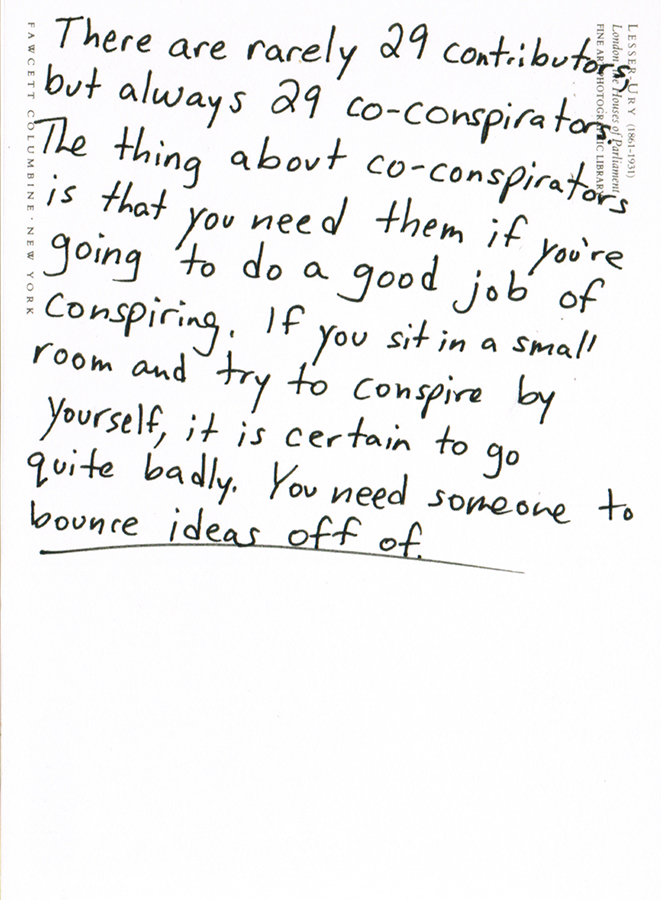 There are rarely 29 contributors,
but always 29 co-conspirators.
The thing about co-conspirators
is that you need them if you're
going to do a good job of
conspiring. If you sit in a small
room and try to conspire by
yourself, it is certain to go
quite badly. You need someone to
bounce ideas off of.
FAWCETT COLUMBINE · NEW YORK
LESSER-URY (1861-1931)
London the Houses of Parliament
FINE ART PHOTOGRAPHIC LIBRARY